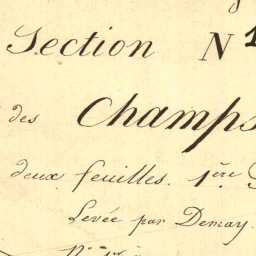 Section N 1
des Champs
deux feuilles. 1ère
Levée par Demay.